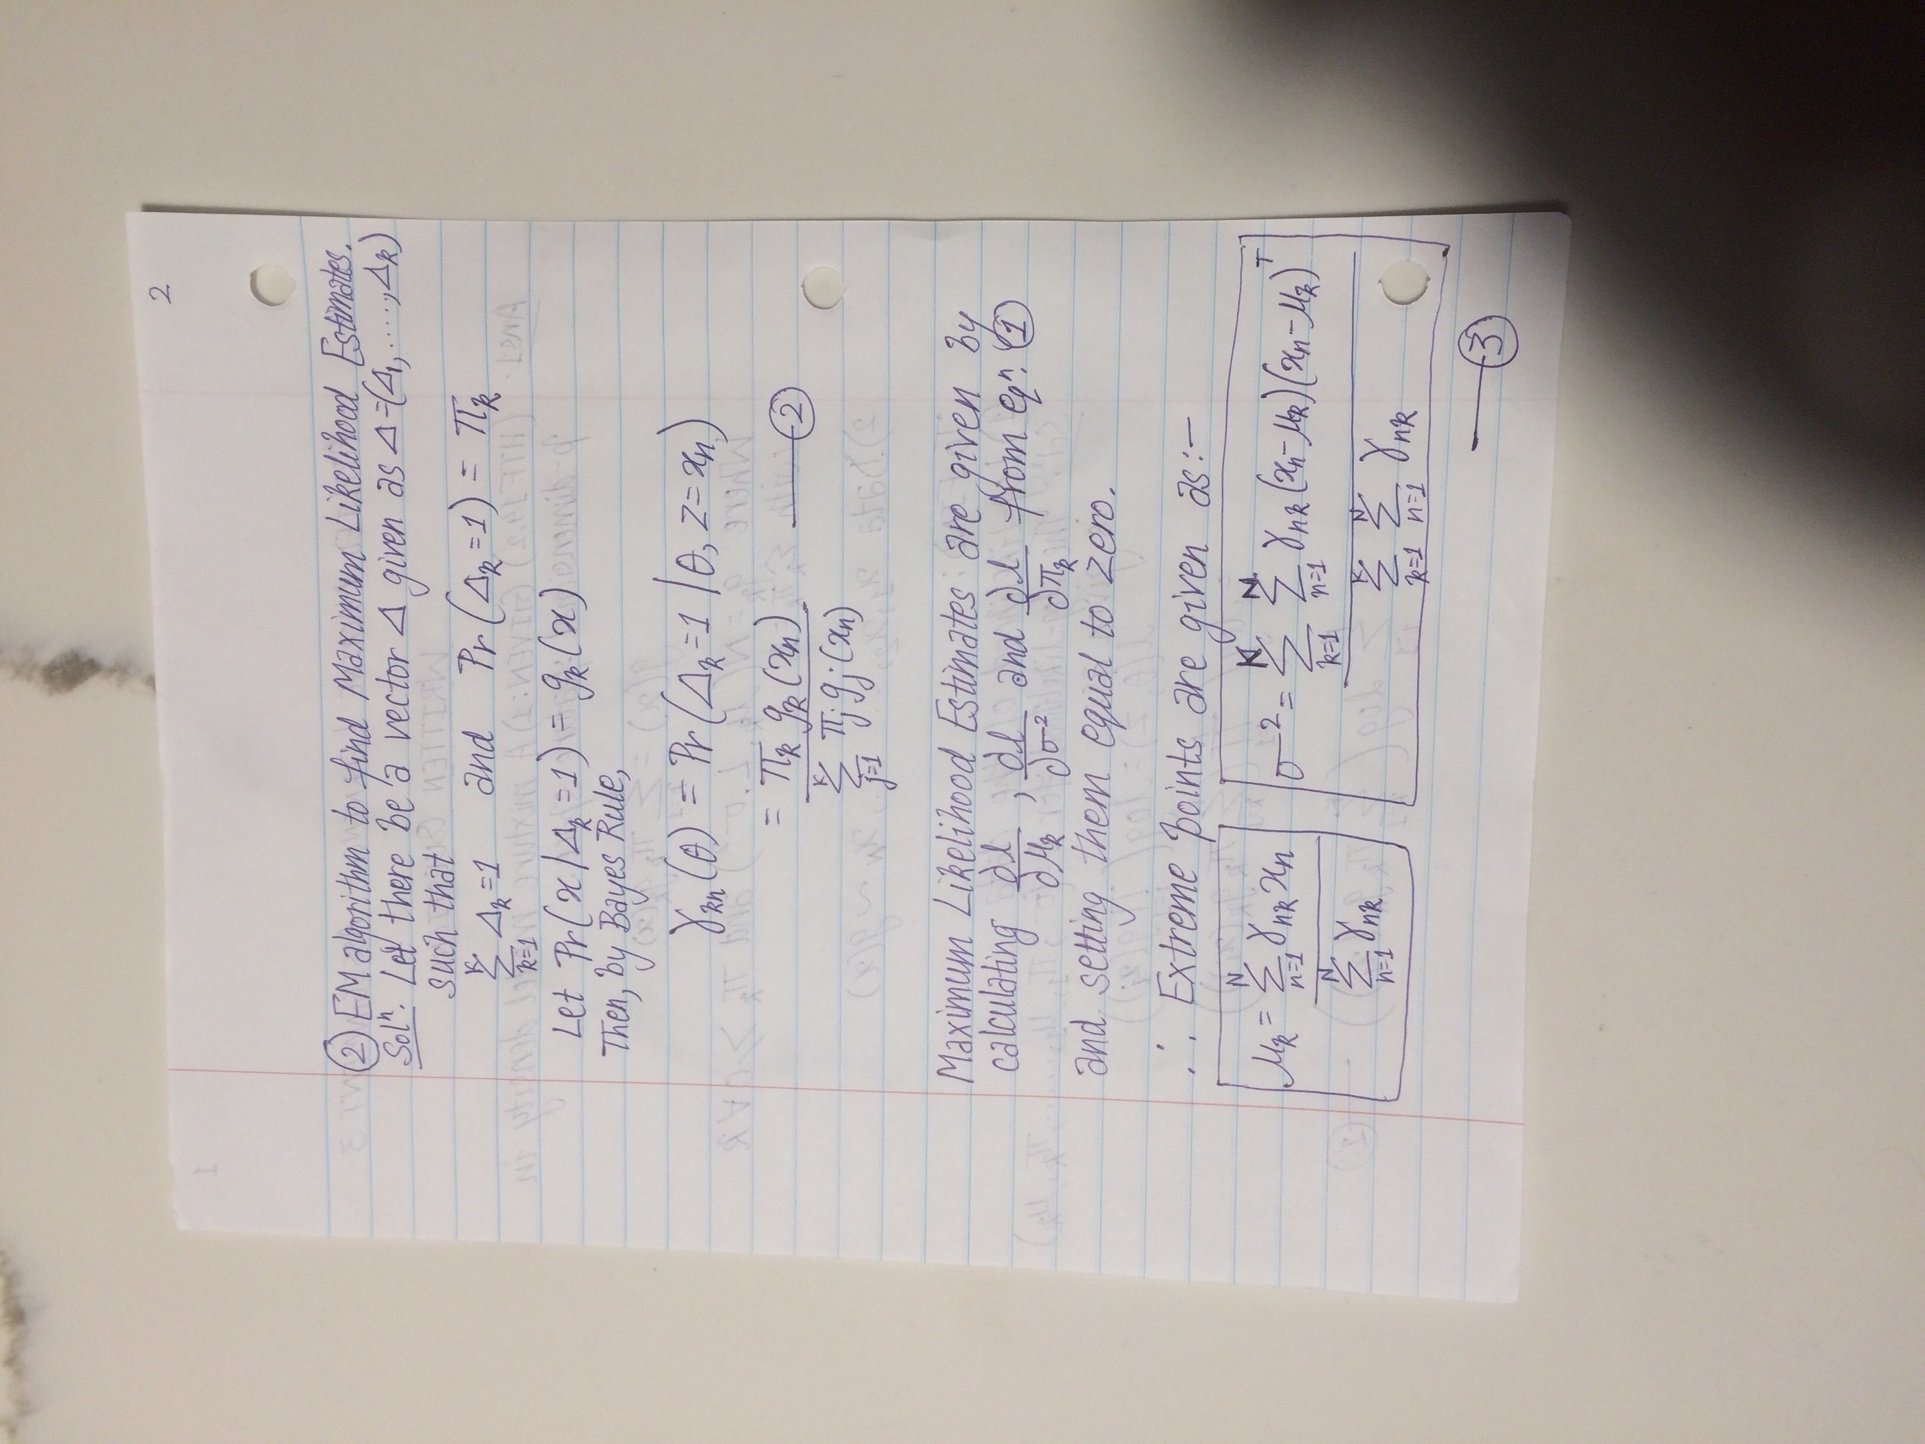 2
② EM algorithm to find Maximum Likelihood Estimates.
Solⁿ: Let there be a vector Δ given as Δ=(Δ₁,....,Δₖ)
such that
∑_{k=1}^{K} Δₖ=1 and Pr(Δₖ=1) = πₖ
Let Pr(x|Δₖ=1) = gₖ(x)
Then, by Bayes Rule,
γₖₙ(θ) = Pr(Δₖ=1|θ, z=xₙ)
= πₖ gₖ(xₙ) / ∑_{j=1}^{K} πⱼ gⱼ(xₙ) —②
Maximum Likelihood Estimates are given by
calculating ∂l/∂μₖ, ∂l/∂σ² and ∂l/∂πₖ from eqⁿ. ①
and setting them equal to zero.
∴ Extreme points are given as:-
μₖ = ∑_{n=1}^{N} γₙₖ xₙ / ∑_{n=1}^{N} γₙₖ σ² = ∑_{k=1}^{K} ∑_{n=1}^{N} γₙₖ(xₙ-μₖ)(xₙ-μₖ)ᵀ / ∑_{k=1}^{K} ∑_{n=1}^{N} γₙₖ
—③